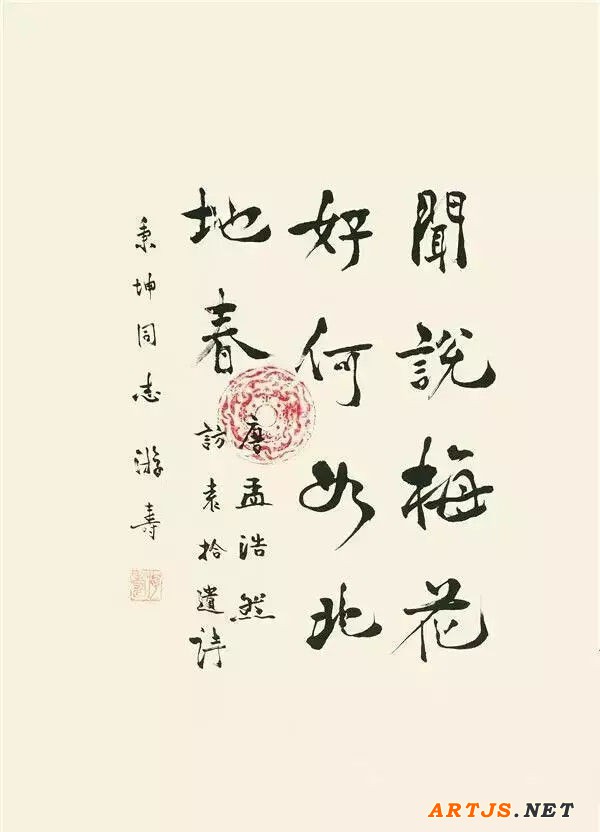 聞說梅花
好何如北
地春
唐孟浩然
訪袁拾遺詩
秉坤同志游壽
ARTJS.NET